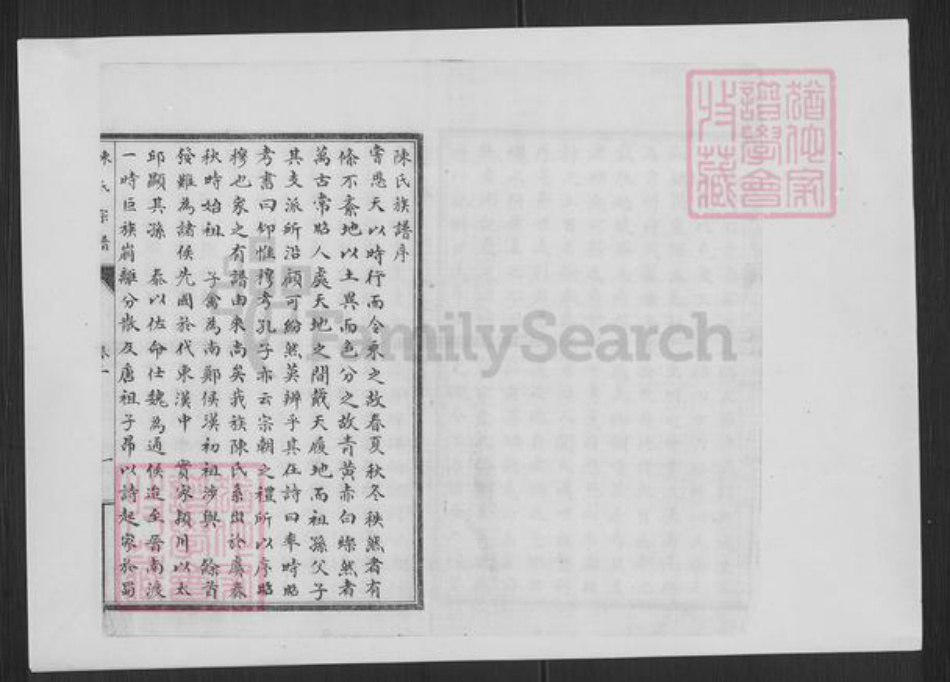 陳氏族譜序
嘗思天以時行而令乘之故春夏秋冬秩然者有
條不紊地以土異而色分之故青黃赤白燦然者
萬古常昭人處天地之間戴天履地而祖孫父子
其支派所沿頋可紛然莫辨乎其在詩曰率時昭
考書曰仰惟穆考孔子亦云宗朝之禮所以序昭
穆也家之有譜由來尚矣我族陳氏系出於虞春
秋時始祖 子禽為南鄭侯漢初祖涉與 餘首
發難為諸侯先國於代東漢中 實家頴川以太
邱顯其孫 泰以佐命仕魏為通侯迨至晉南渡
一時巨族崩離分散及唐祖子昂以詩起家於蜀
陳氏宗譜
猶他家譜學會收藏
FamilySearch